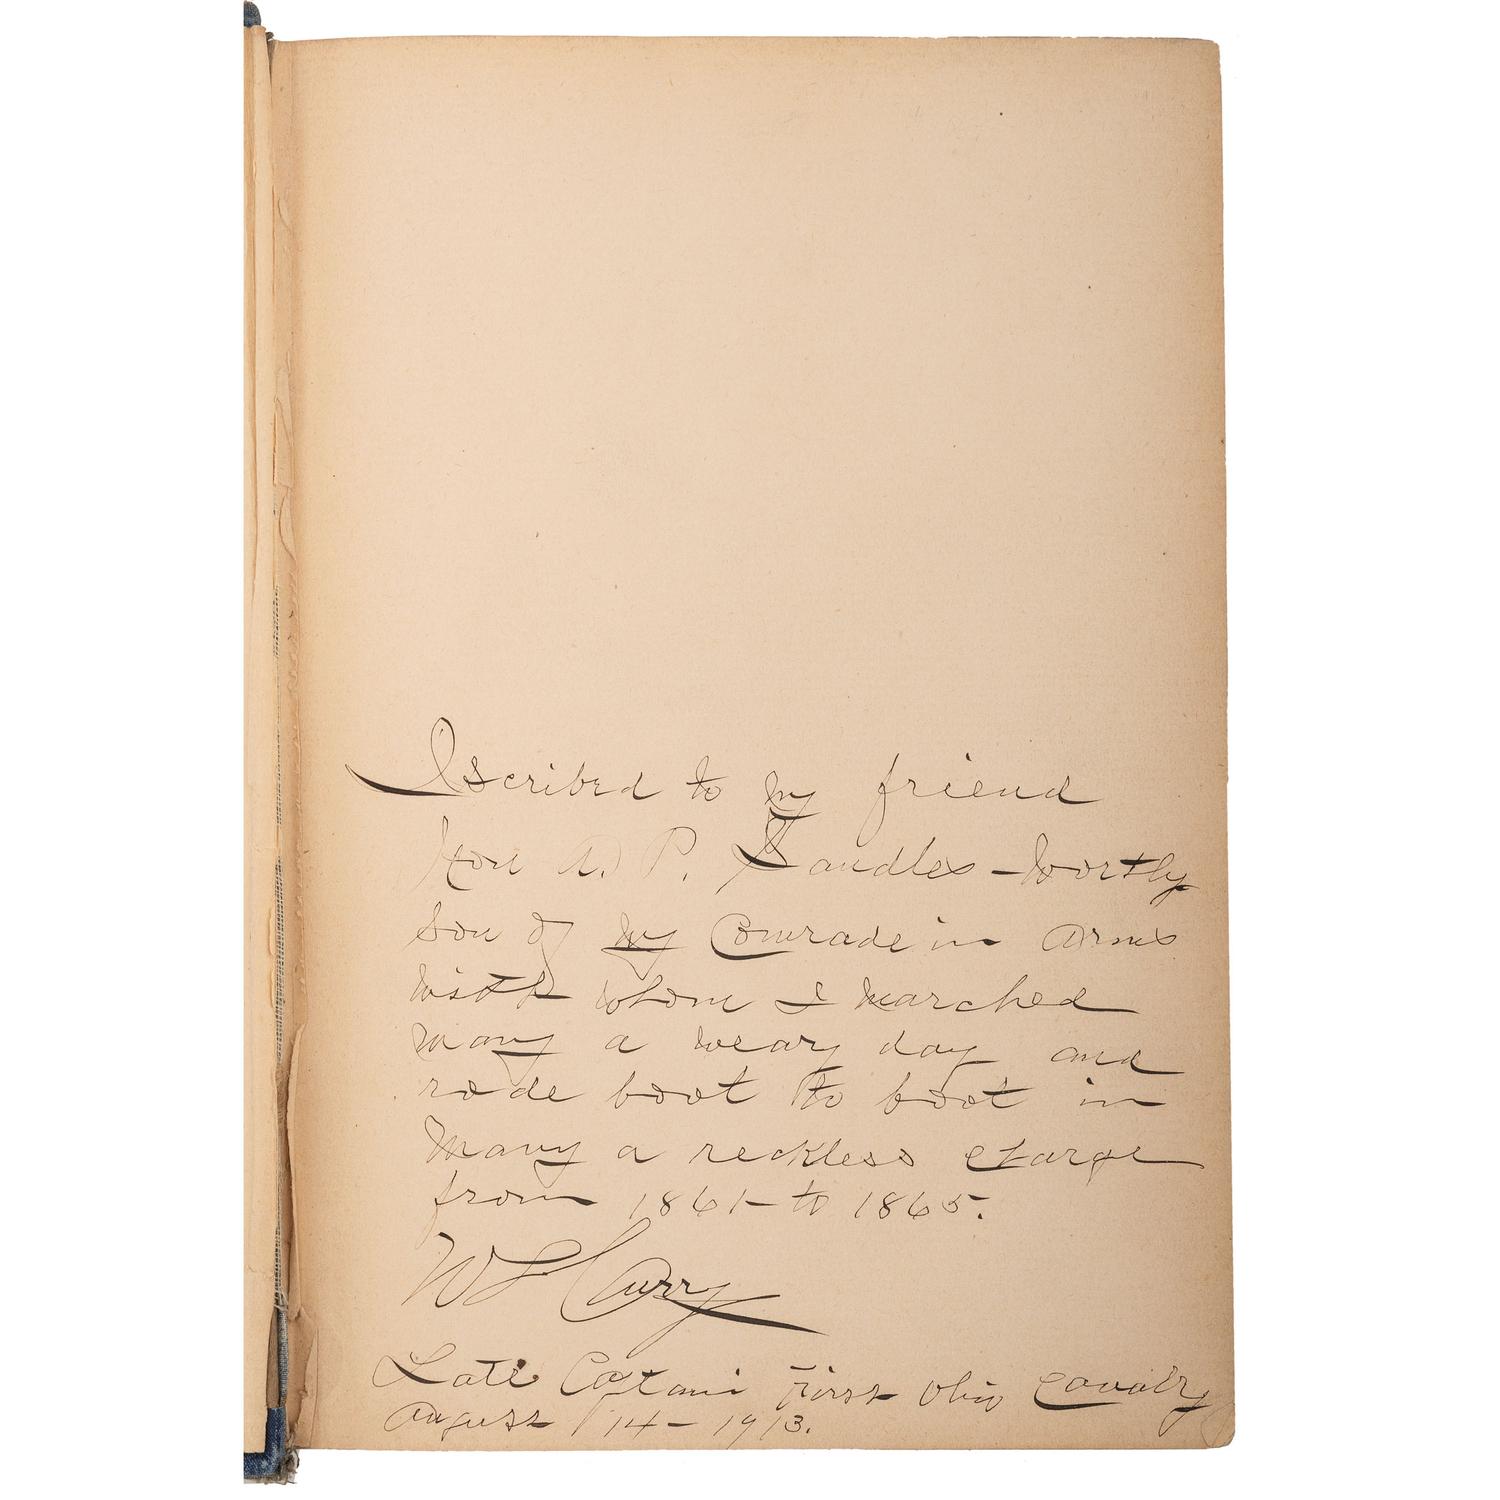 Iscribed to my friend
Hon A. P. Sandles - Worthy
Son of my Comrade in Arms
with whom I marched
many a weary day and
rode boot to boot in
Many a reckless charge
from 1861 - to 1865.
W L Curry
Late Captain First Ohio Cavalry
August 14 - 1913.